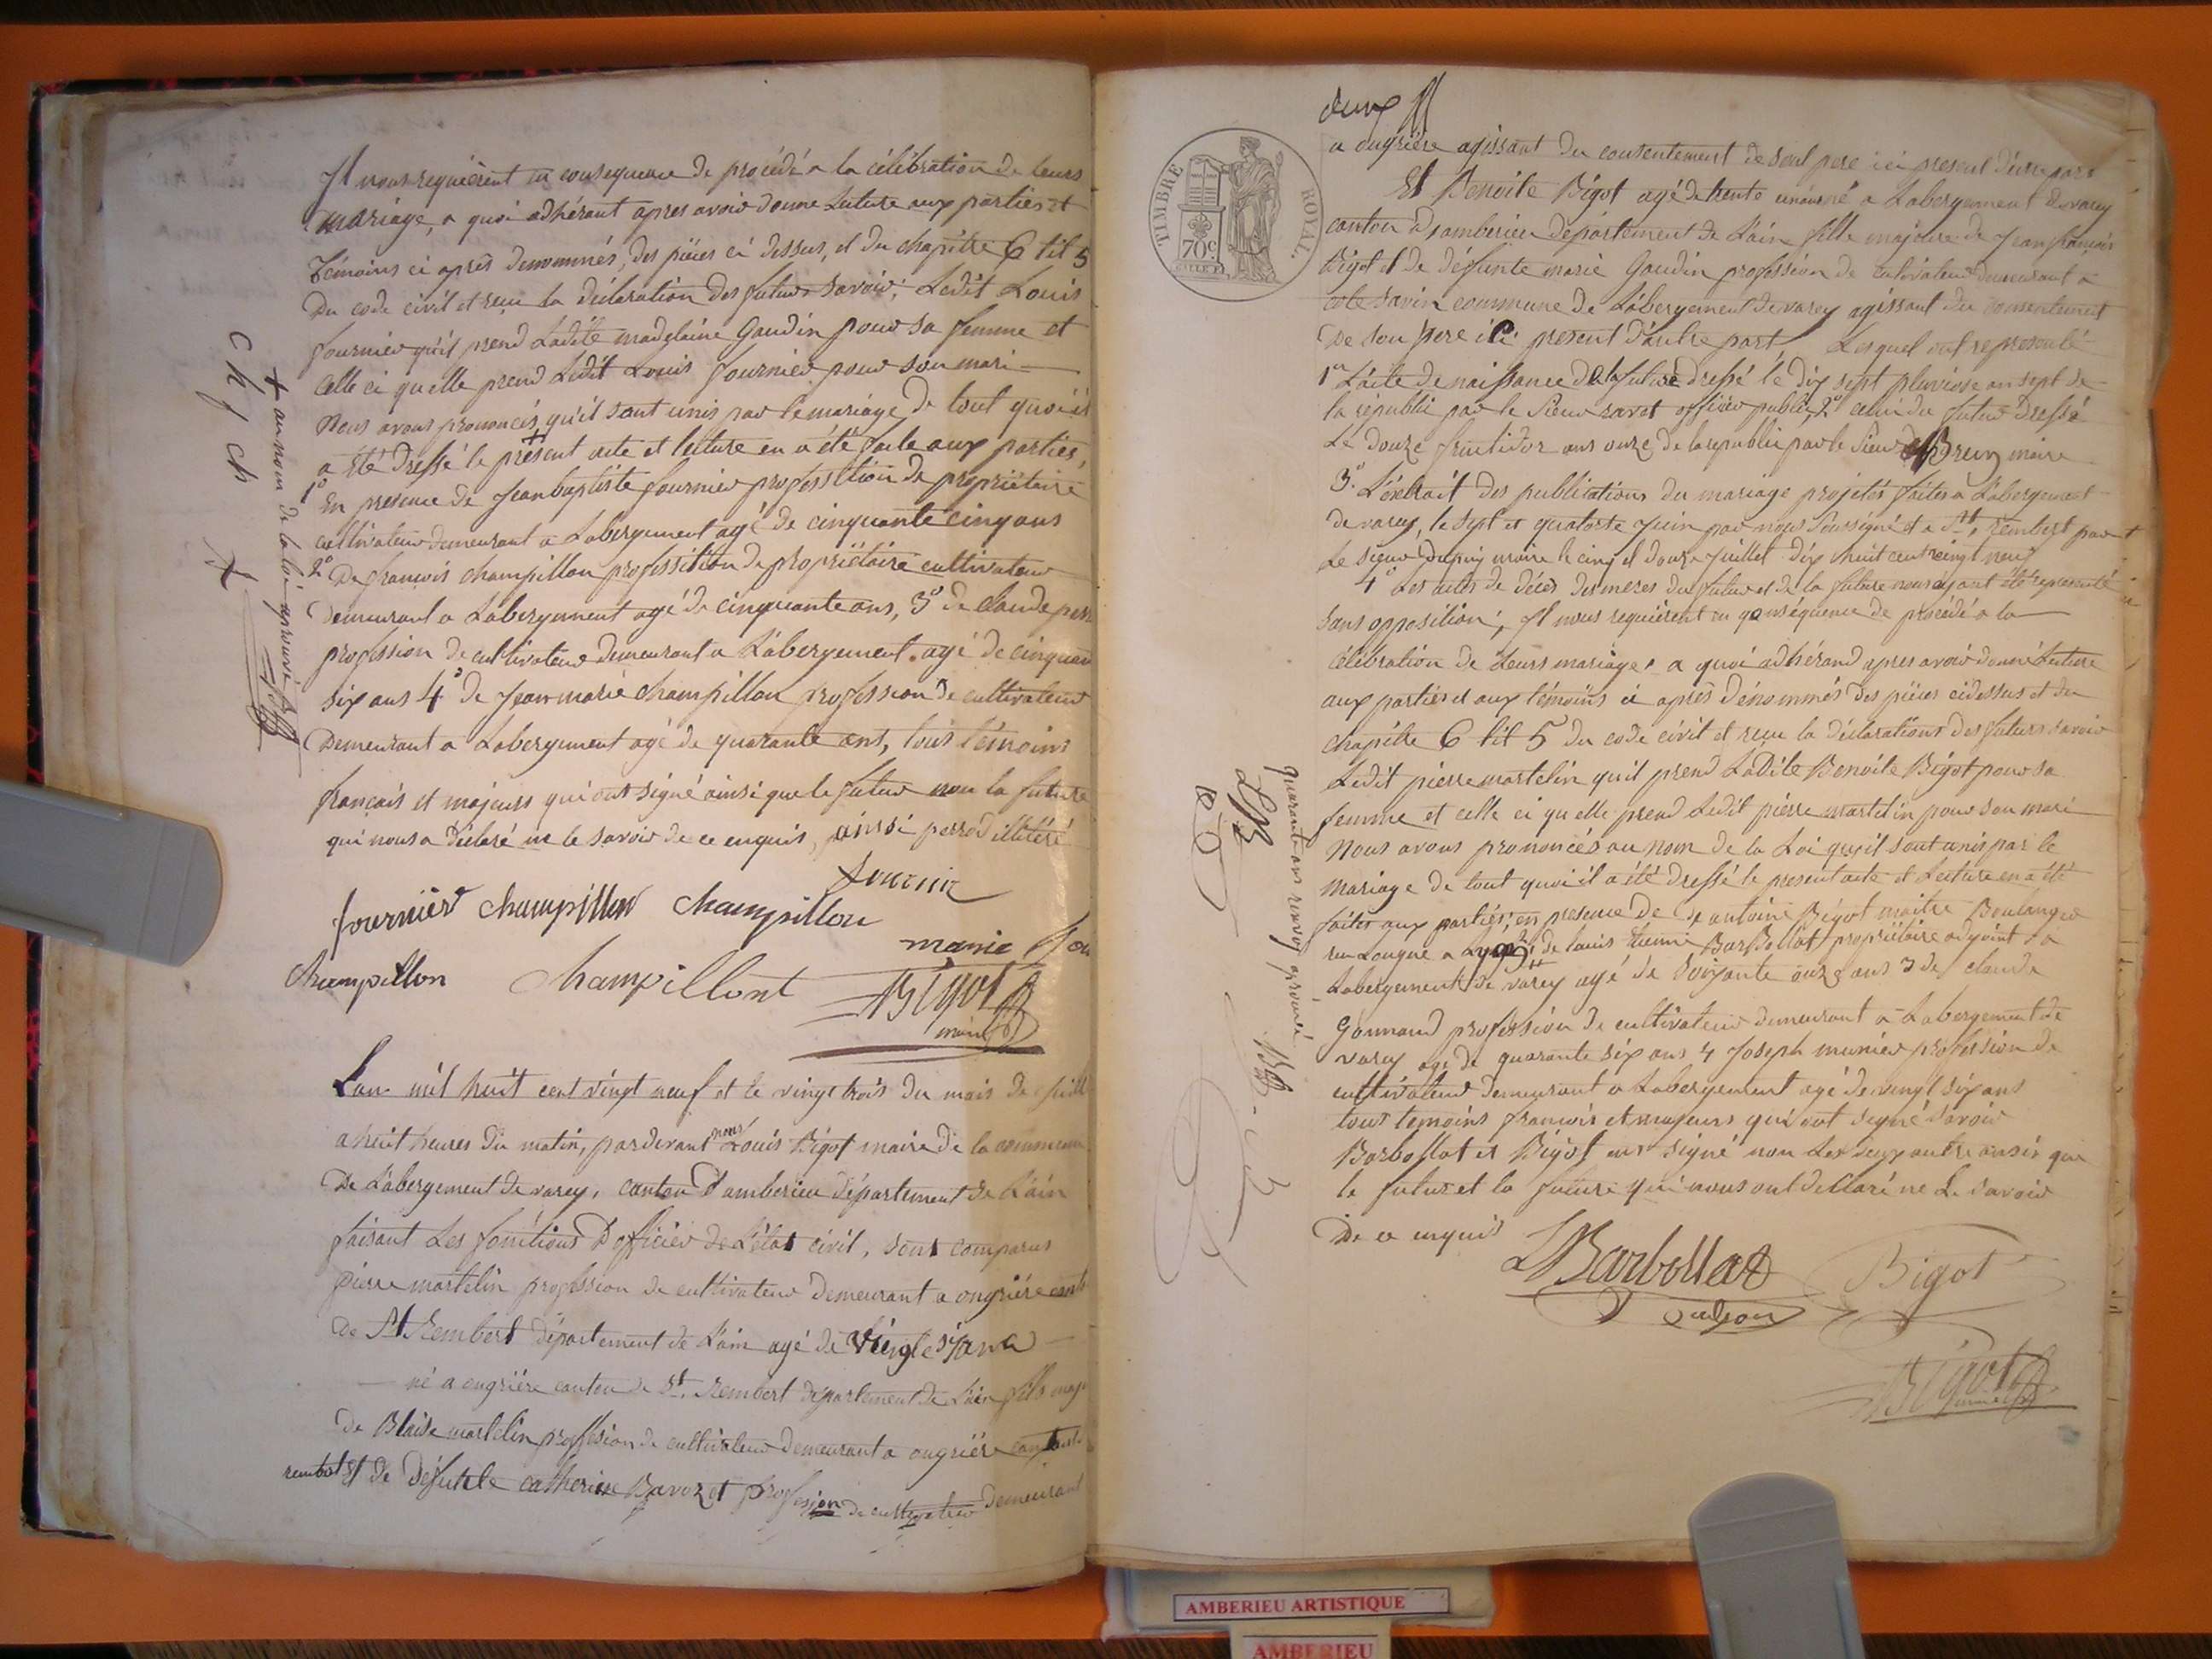 Il nous requièrent en consequence de procédé a la célébration de leurs
mariage, a quoi adhérant apres avoir donne Lecture aux parties et
Témoins ci après denommés, des pièces ci dessus, et du chapitre 6 tit 5
Du code civil et reçu la déclaration des futurs savoir; Ledit Louis
fournier qu'il prend Ladite madelaine Gaudin pour sa femme et
Celle ci quelle prend Ledit Louis fournier pour son mari
Nous avons prononcés + qu'il sont unis par le mariage, de tout quoi il
a été Dressé le présent acte et lecture en a été faite aux parties,
1º En presence de Jean baptiste fournier professition de propriétaire
cultivateur demeurant a Labergement agé de cinquante cinq ans
2º De françois champillon professition de propriétaire cultivateur
Demeurant a Labergement agé de cinquante ans, 3º de claude perr
profession de cultivateur demeurant a Labergement. agé de cinquan
six ans 4º de Jean marie champillon profession de cultivateur
Demeurant a Labergement agé de quarante ans, tous témoins
français et majeurs qui ont signé ainsi que le futur non la future
qui nous a déclaré ne le savoir de ce enquis, ainsi perrod illitéré
fournier
fournier champillon champillon
marie fou
champillon champillont Bigot
maire
+ au nom de la loi aprouvé
ch f ch
L'an mil huit cent vingt neuf et le vingt trois du mois de juill
a huit heures du matin, pardevant nous Louis Bigot maire de la commune
De Labergement de varey, canton d'amberieu département de L'ain
faisant Les fonctions D'officier de L'état civil, sont comparus
pierre martelin profession de cultivateur demeurant a ongriére cant
de St Rembert département de L'ain agé de Vingt six ans
né a ongriére canton de St. Rembert département de L'ain fils maj
de Blaise martelin profession de cultivateur demeurant a ongriére canton de
rembert Et de Defunte catherine Bavozet profession de cultivateur demeurant
deux
TIMBRE ROYAL.
70c.
a ongriére agissant du consentement de son pere ici present d'une part
Et Benoite Bigot agé de trente un an né a Labergement de varey
canton d'amberieu département de L'ain fille majeure de Jean françois
Bigot et de défunte marie Gaudin profession de cultivateur demeurant a
cote savin commune de Labergement de varey agissant du consentement
De son pere ici present d'autre part, Lesquel ont representé
1er L'acte de naissance de la future dressé le dix sept pluviose an sept de
la républic par le Sieur ravet officier public, 2º celui du futur Dressé
Le douze fructidor ans onze de la republic par le Sieur Brun maire
3º. L'extrait des publications du mariage projetés faites a Labergement
de varey, le sept et quatorze Juin par nous Soussigné et a St, rembert par
Le sieur maire le cinq et douze Juillet dix huit cent vingt neuf
4º Les actes de décès des meres du futur et de la future nous ayant été representé
sans opposition; Il nous requièrent en conséquence de procédé a la
célébration de Leurs mariage, a quoi adhérand apres avoir donné Lecture
aux parties et aux témoins ci après dénommés des pièces cidessus et du
chapitre 6 tit 5 du code civil et reçu la déclarations des futurs savoir
Ledit pierre martelin qu'il prend Ladite Benoite Bigot pour sa
femme et celle ci quelle prend Ledit pierre martelin pour son mari
Nous avons prononcés au nom de la Loi qu'il sont unis par le
mariage de tout quoi il a été dressé le present acte et Lecture en a été
faites aux parties; en presence de de antoine Bigot maitre Boulanger
rue Longue a Lyon 2º de louis Barbollat propriétaire adjoint a
Labergement de varey agé de soixante onze ans 3 de claude
Gonnand profession de cultivateur demeurant a Labergement de
varey agé de quarante six ans 4 Joseph munier profession de
cultivateur demeurant a Labergement agé de vingt six ans
tous temoins francois et majeurs qui ont signé savoir
Barbollat et Bigot ont signé non Les deux autre ainsi que
le futur et la future qui nous ont déclaré ne Le savoir
De ce enquis
LBarbollat Bigot
Bigot
maire
quarante ans renvoy aprouvé
LB
AMBERIEU ARTISTIQUE
AMBERIEU